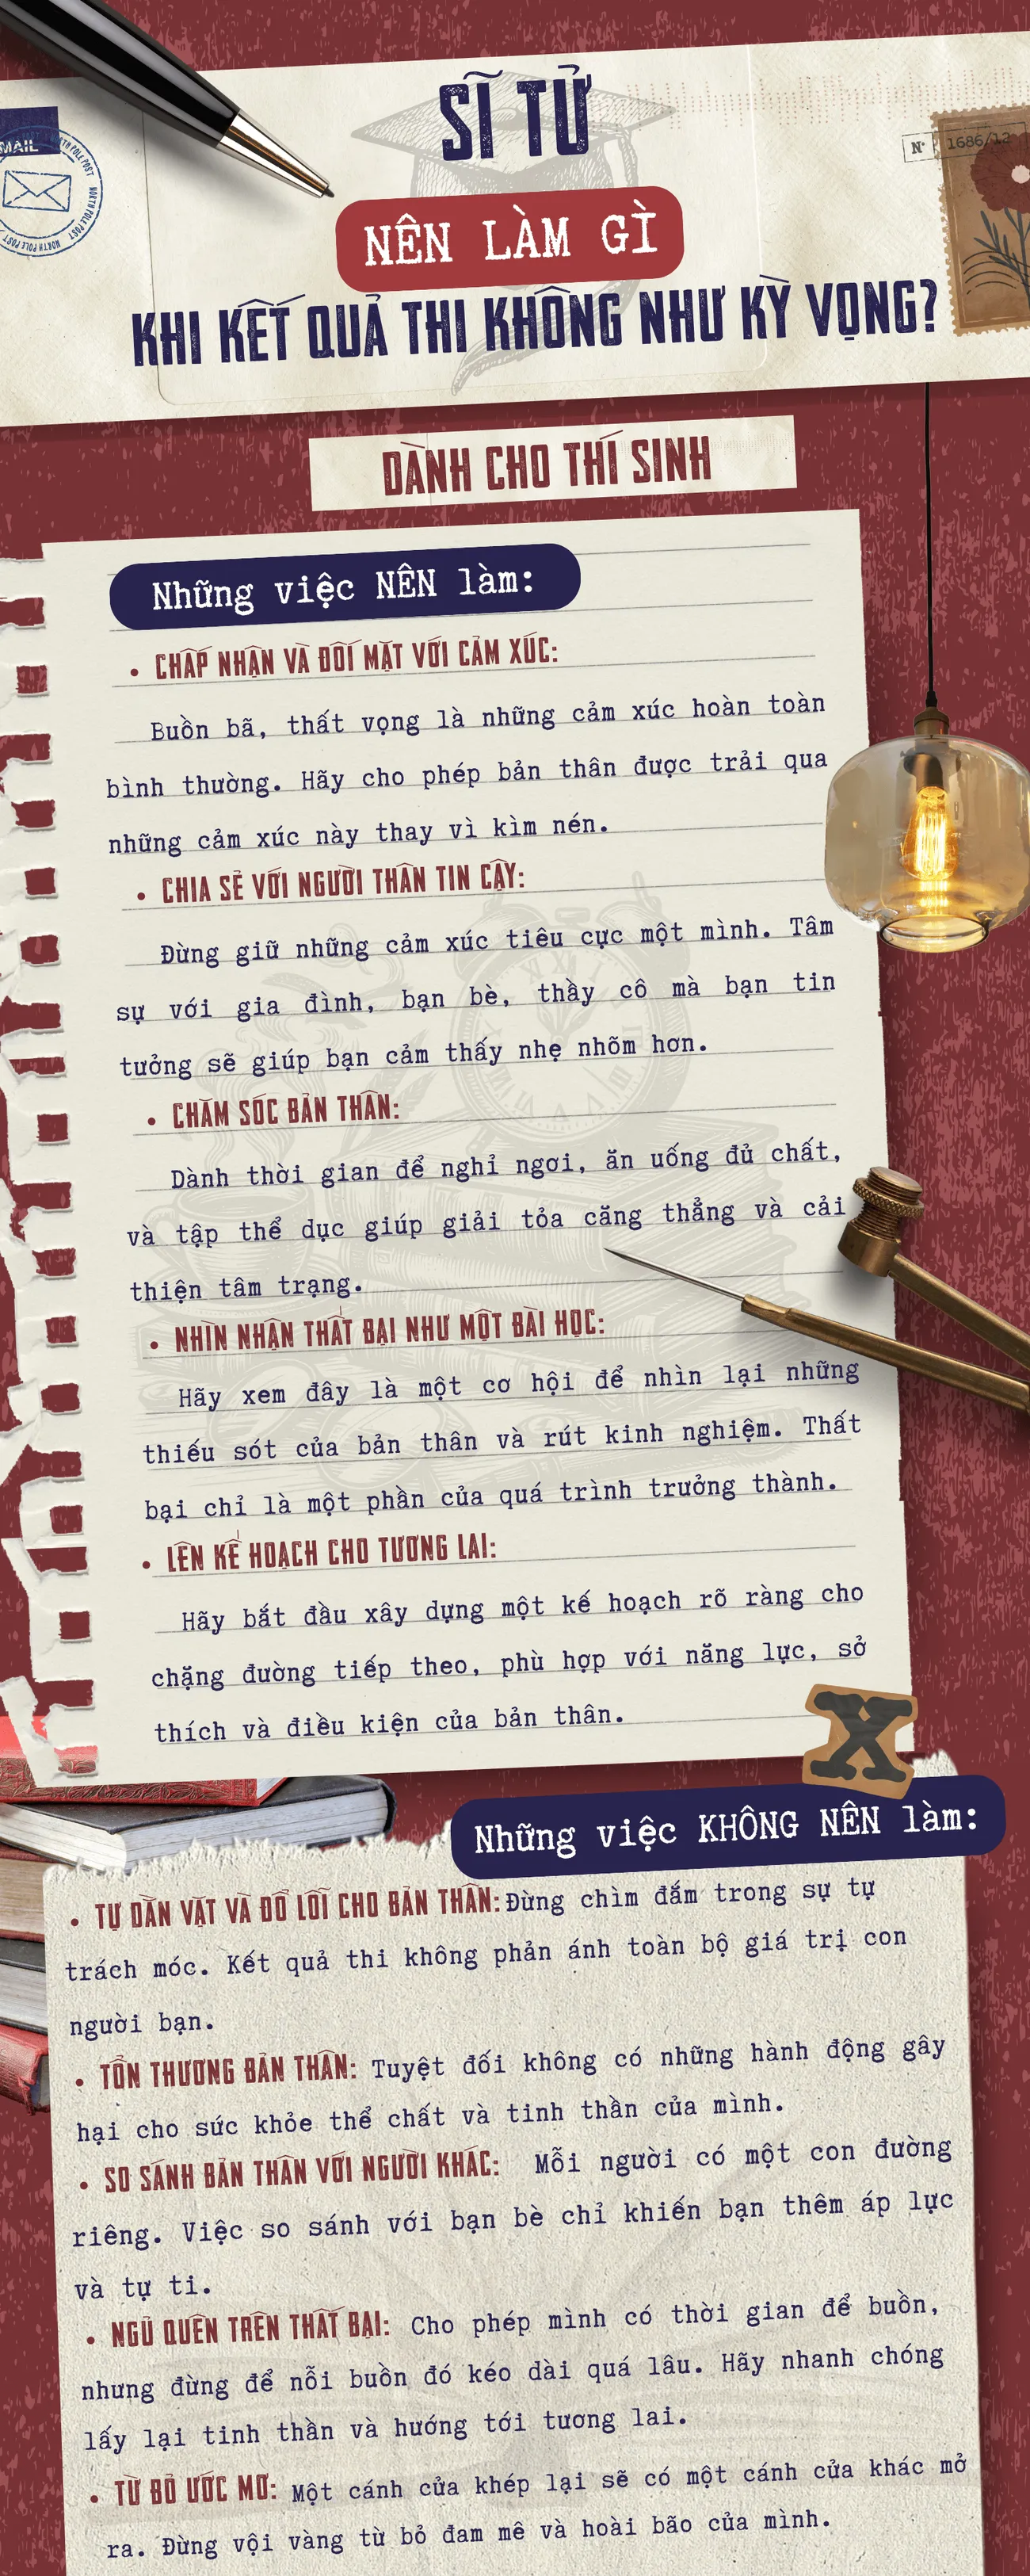 SĨ TỬ
NÊN LÀM GÌ
KHI KẾT QUẢ THI KHÔNG NHƯ KỲ VỌNG?
MAIL
NORTH POLE POST
NORTH POLE POST
N° 1686/12
DÀNH CHO THÍ SINH
Những việc NÊN làm:
• CHẤP NHẬN VÀ ĐỐI MẶT VỚI CẢM XÚC:
Buồn bã, thất vọng là những cảm xúc hoàn toàn
bình thường. Hãy cho phép bản thân được trải qua
những cảm xúc này thay vì kìm nén.
• CHIA SẺ VỚI NGƯỜI THÂN TIN CẬY:
Đừng giữ những cảm xúc tiêu cực một mình. Tâm
sự với gia đình, bạn bè, thầy cô mà bạn tin
tưởng sẽ giúp bạn cảm thấy nhẹ nhõm hơn.
• CHĂM SÓC BẢN THÂN:
Dành thời gian để nghỉ ngơi, ăn uống đủ chất,
và tập thể dục giúp giải tỏa căng thẳng và cải
thiện tâm trạng.
• NHÌN NHẬN THẤT BẠI NHƯ MỘT BÀI HỌC:
Hãy xem đây là một cơ hội để nhìn lại những
thiếu sót của bản thân và rút kinh nghiệm. Thất
bại chỉ là một phần của quá trình trưởng thành.
• LÊN KẾ HOẠCH CHO TƯƠNG LAI:
Hãy bắt đầu xây dựng một kế hoạch rõ ràng cho
chặng đường tiếp theo, phù hợp với năng lực, sở
thích và điều kiện của bản thân.
X
Những việc KHÔNG NÊN làm:
• TỰ DẰN VẶT VÀ ĐỔ LỖI CHO BẢN THÂN: Đừng chìm đắm trong sự tự
trách móc. Kết quả thi không phản ánh toàn bộ giá trị con
người bạn.
• TỔN THƯƠNG BẢN THÂN: Tuyệt đối không có những hành động gây
hại cho sức khỏe thể chất và tinh thần của mình.
• SO SÁNH BẢN THÂN VỚI NGƯỜI KHÁC: Mỗi người có một con đường
riêng. Việc so sánh với bạn bè chỉ khiến bạn thêm áp lực
và tự ti.
• NGỦ QUÊN TRÊN THẤT BẠI: Cho phép mình có thời gian để buồn,
nhưng đừng để nỗi buồn đó kéo dài quá lâu. Hãy nhanh chóng
lấy lại tinh thần và hướng tới tương lai.
• TỪ BỎ ƯỚC MƠ: Một cánh cửa khép lại sẽ có một cánh cửa khác mở
ra. Đừng vội vàng từ bỏ đam mê và hoài bão của mình.